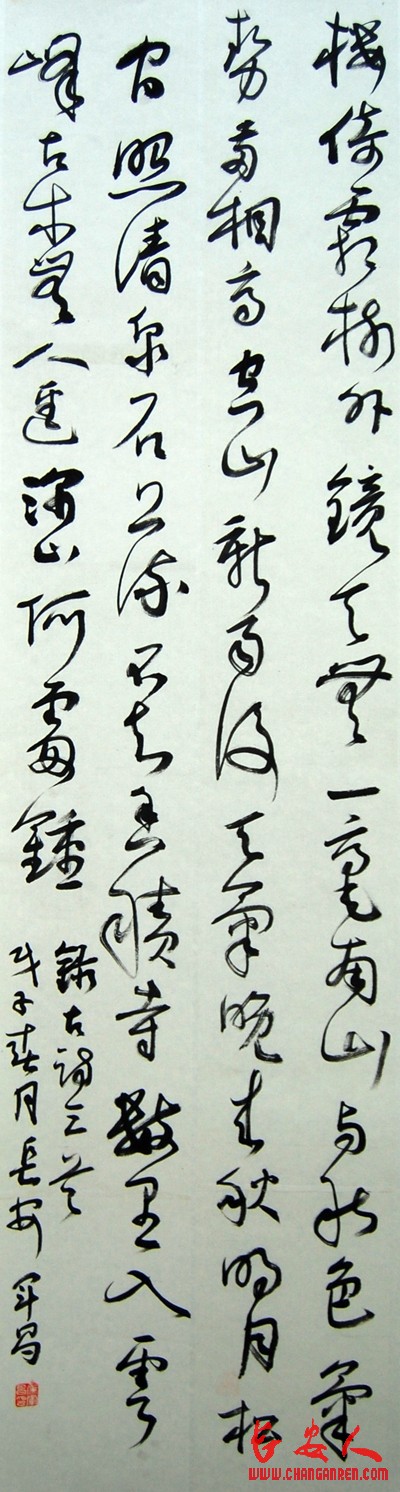 樓倚霜樹外鏡天無一毫南山与秋色氣
勢兩相高空山新雨後天氣晚来秋明月松
間照清泉石上流不知香積寺數里入雲
峰古木無人逕深山何處鐘
錄古詩三首
戊子春月長安
长安人
WWW.CHANGANREN.COM